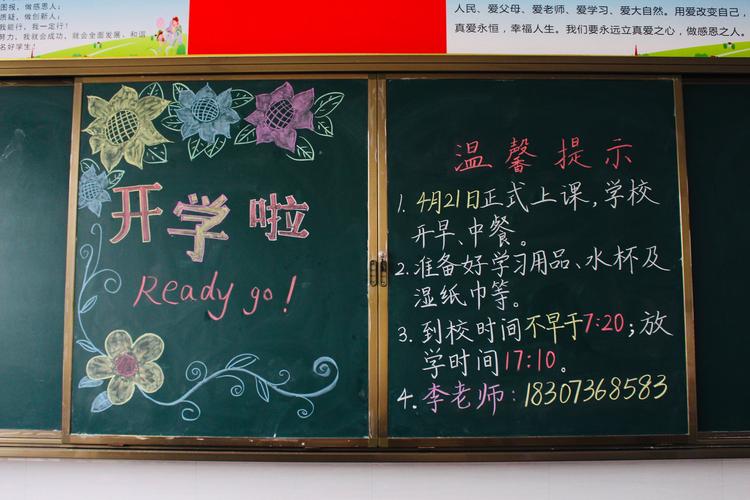 图报，做感恩人；
质疑，做创新人；
我能行，我一定行！
努力，我就会成功，就会全面发展、和谐
名好学生！
人民、爱父母、爱老师、爱学习、爱大自然。用爱改变自己，
真爱永恒，幸福人生。我们要永远立真爱之心，做感恩之人。
开学啦
Ready go!
温馨提示
1. 4月21日正式上课，学校
开早、中餐。
2. 准备好学习用品、水杯及
湿纸巾等。
3. 到校时间不早于7:20；放
学时间17:10。
4. 李老师：18307368583